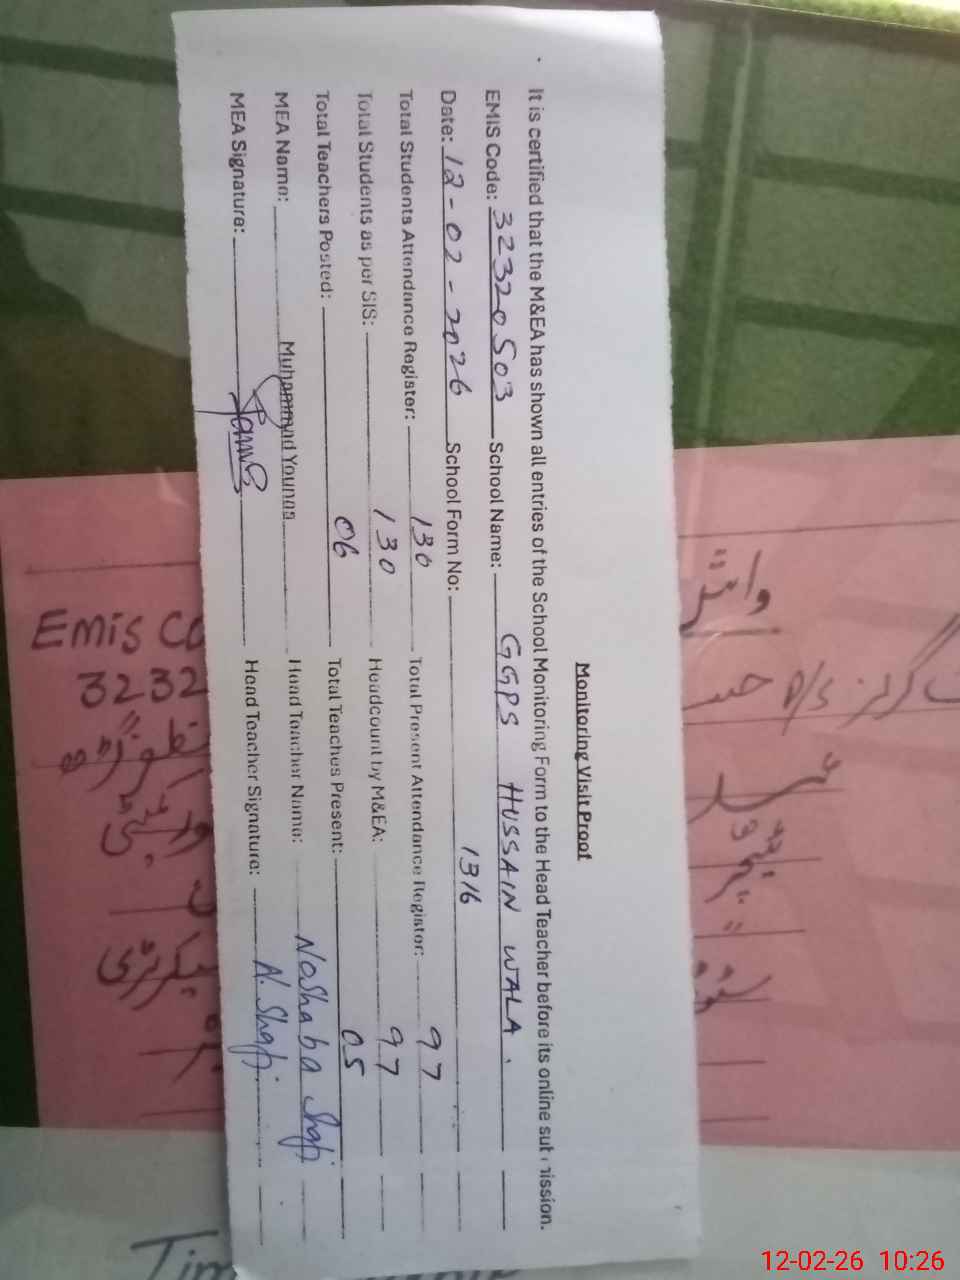 Monitoring Visit Proof
It is certified that the M&EA has shown all entries of the School Monitoring Form to the Head Teacher before its online submission.
EMIS Code: 32320503 School Name: GGPS HUSSAIN WALA.
Date: 12-02-2026 School Form No: 1316
Total Students Attendance Register: 130 Total Present Attendance Register: 97
Total Students as per SIS: 130 Headcount by M&EA: 97
Total Teachers Posted: 06 Total Teaches Present: 05
MEA Name: Muhammad Younas Head Teacher Name: Noshaba Shafi
MEA Signature: Head Teacher Signature: N. Shafi
Emis Co
3232
12-02-26 10:26